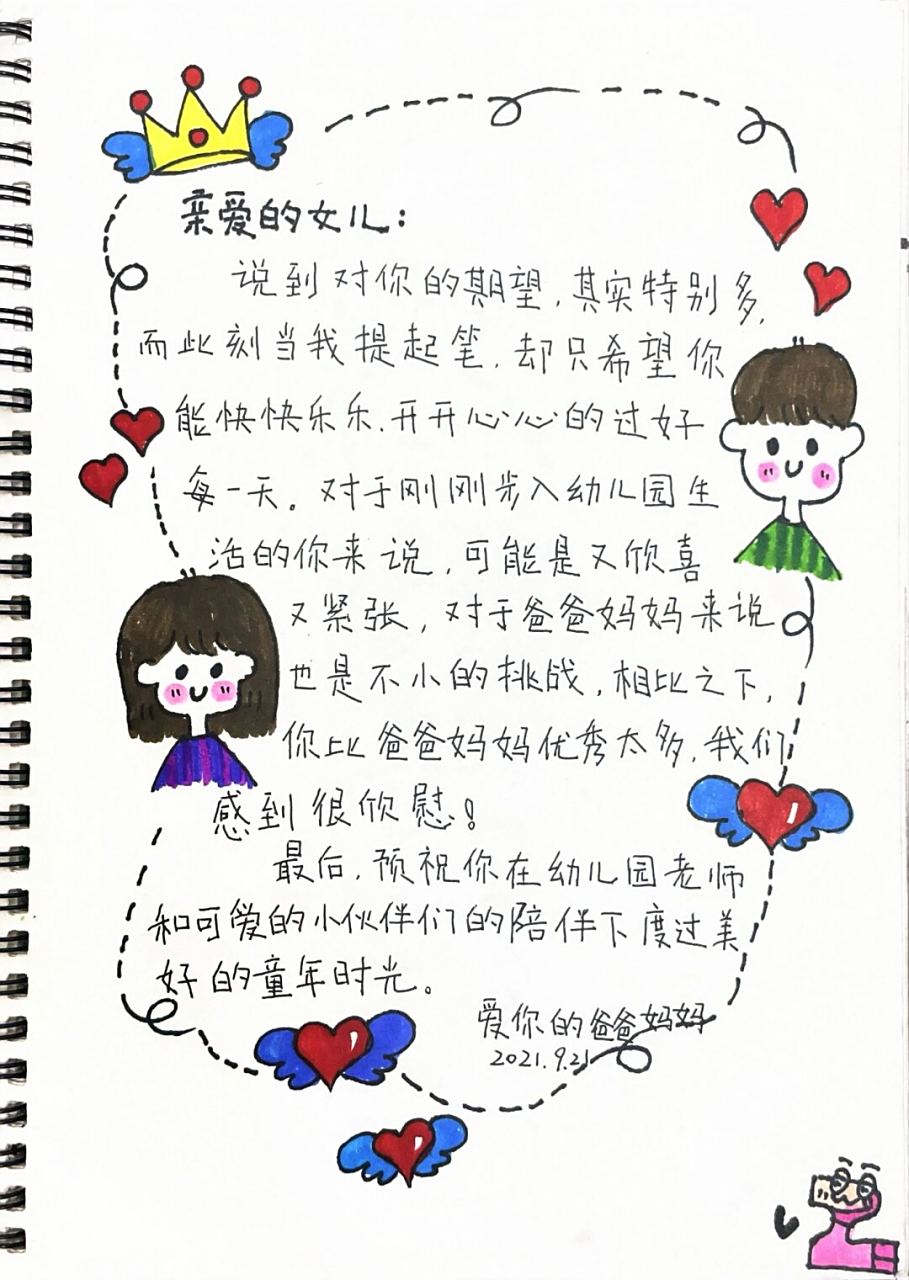 亲爱的女儿:
说到对你的期望,其实特别多,
而此刻当我提起笔,却只希望你
能快快乐乐,开开心心的过好
每一天。对于刚刚步入幼儿园生
活的你来说,可能是又欣喜
又紧张,对于爸爸妈妈来说
也是不小的挑战,相比之下,
你比爸爸妈妈优秀太多,我们
感到很欣慰!
最后,预祝你在幼儿园老师
和可爱的小伙伴们的陪伴下度过美
好的童年时光。
爱你的爸爸妈妈
2021.9.21